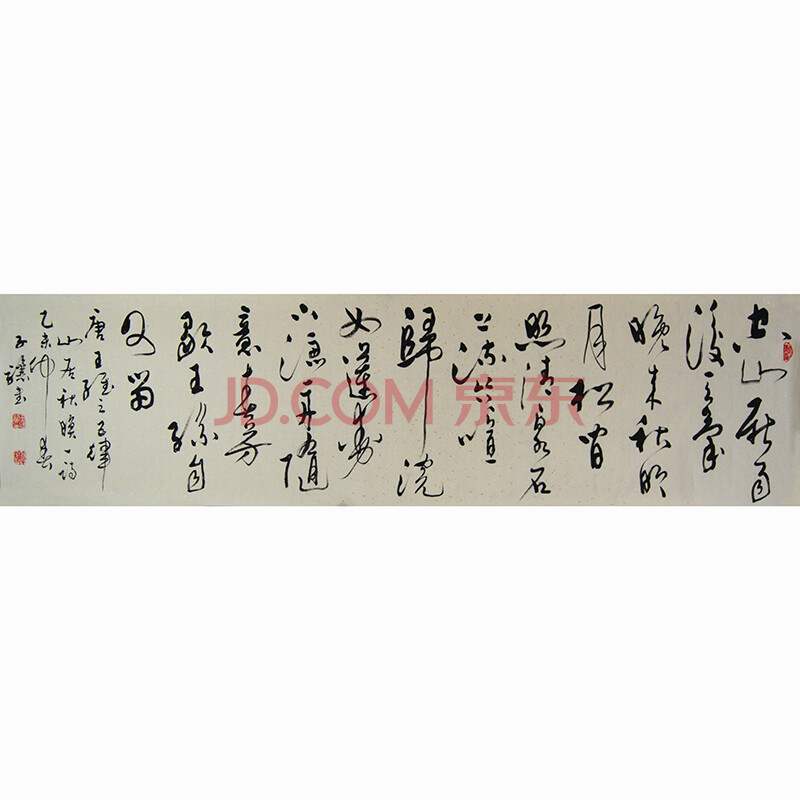 空山新雨
後天氣
晚来秋明
月松间
照清泉石
上流竹喧
歸浣
女蓮動
下漁舟隨
意春芳
歇王孫自
可留
唐王維之五律
山居秋暝一詩
乙未仲春
子
書
JD.COM 京东